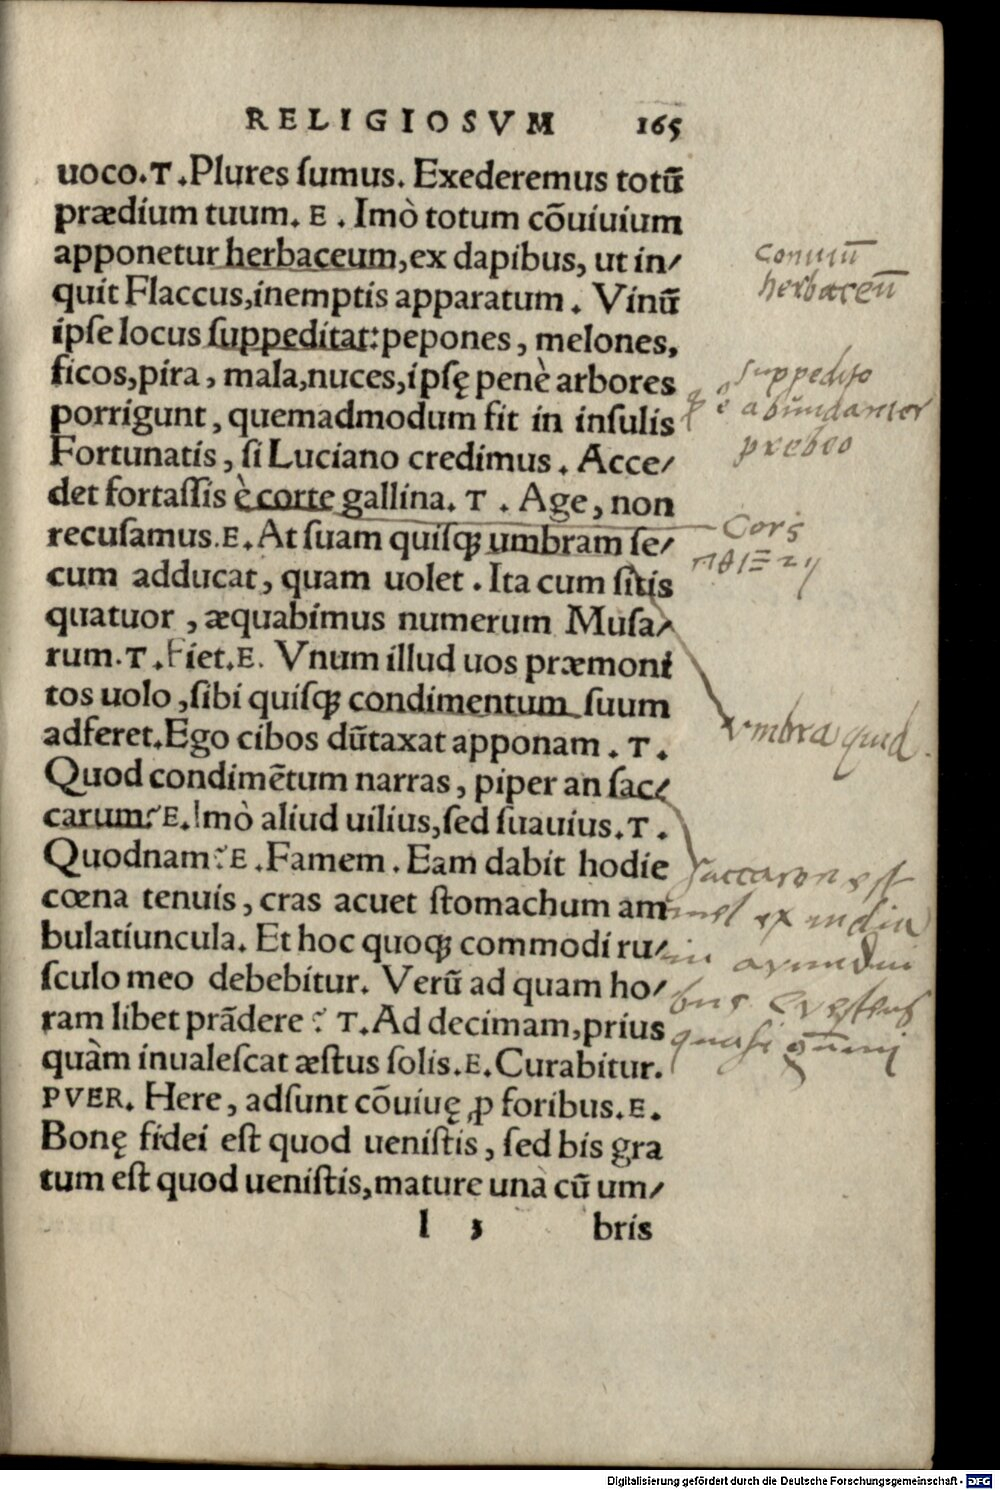 RELIGIOSVM 165
uoco.T.Plures ſumus. Exederemus totū
prædium tuum. E. Imò totum cōuiuium
apponetur herbaceum,ex dapibus, ut in/
quit Flaccus,inemptis apparatum. Vinū
ipſe locus ſuppeditat:pepones, melones,
ficos,pira, mala,nuces,ipſę penè arbores
porrigunt, quemadmodum fit in inſulis
Fortunatis, ſi Luciano credimus. Acce/
det fortaſſis è corte gallina. T. Age, non
recuſamus.E. At ſuam quiſqꝫ umbram ſe/
cum adducat, quam uolet. Ita cum ſitis
quatuor, æquabimus numerum Muſa/
rum.T.Fiet.E. Vnum illud uos præmoni
tos uolo, ſibi quiſqꝫ condimentum ſuum
adferet.Ego cibos dūtaxat apponam. T.
Quod condimētum narras, piper an ſac/
carum? E.Imò aliud uilius,ſed ſuauius.T.
Quodnam? E. Famem. Eam dabit hodie
cœna tenuis, cras acuet ſtomachum am
bulatiuncula. Et hoc quoqꝫ commodi ru/
ſculo meo debebitur. Verū ad quam ho/
ram libet prādere? T. Ad decimam,prius
quàm inualeſcat æſtus ſolis.E. Curabitur.
PVER. Here, adſunt cōuiuę ꝓ foribus.E.
Bonę fidei eſt quod ueniſtis, ſed bis gra
tum eſt quod ueniſtis,mature unà cū um/
l 3 bris
conuiuū
herbaceū
suppedito
abundanter
prebeo
Cors
vmbra quid
saccaron est
mel ex india
in
quasi gūmi
Digitalisierung gefördert durch die Deutsche Forschungsgemeinschaft - DFG